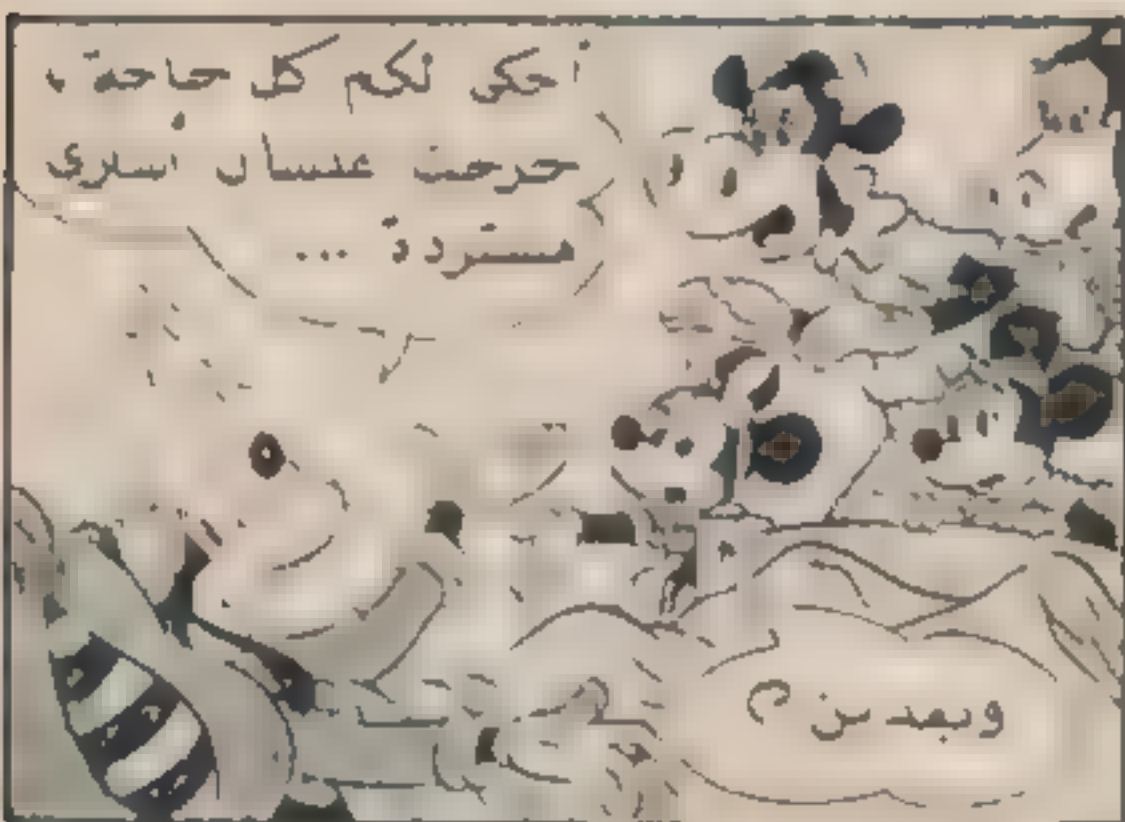 أحكى لكم كل حاجة ،
خرجت عشان أشترى
مسردة ...
وبعدين ؟